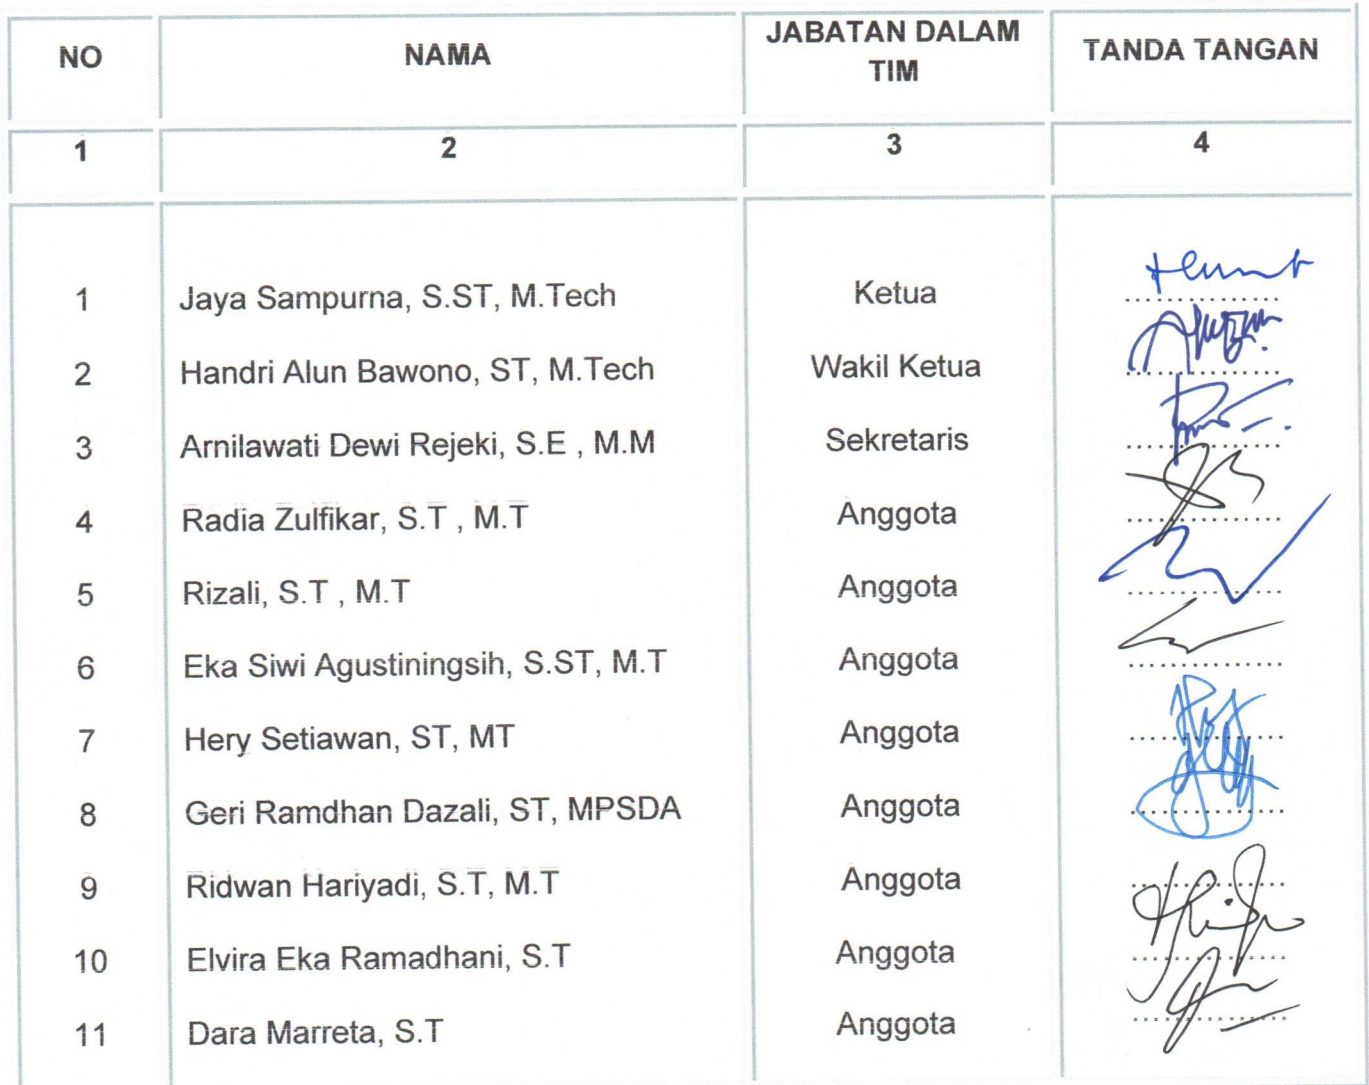 NO NAMA JABATAN DALAM TIM TANDA TANGAN
1 2 3 4
1 Jaya Sampurna, S.ST, M.Tech Ketua
2 Handri Alun Bawono, ST, M.Tech Wakil Ketua
3 Arnilawati Dewi Rejeki, S.E , M.M Sekretaris
4 Radia Zulfikar, S.T , M.T Anggota
5 Rizali, S.T , M.T Anggota
6 Eka Siwi Agustiningsih, S.ST, M.T Anggota
7 Hery Setiawan, ST, MT Anggota
8 Geri Ramdhan Dazali, ST, MPSDA Anggota
9 Ridwan Hariyadi, S.T, M.T Anggota
10 Elvira Eka Ramadhani, S.T Anggota
11 Dara Marreta, S.T Anggota